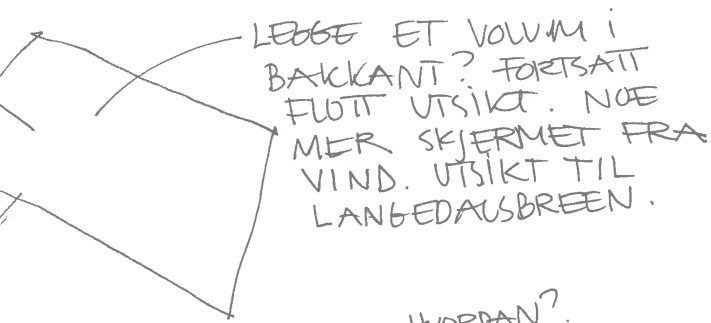 LEGGE ET VOLUM I
BAKKANT? FORTSATT
FLOTT UTSIKT. NOE
MER SKJERMET FRA
VIND. UTSIKT TIL
LANGEDALSBREEN.
HVORDAN?